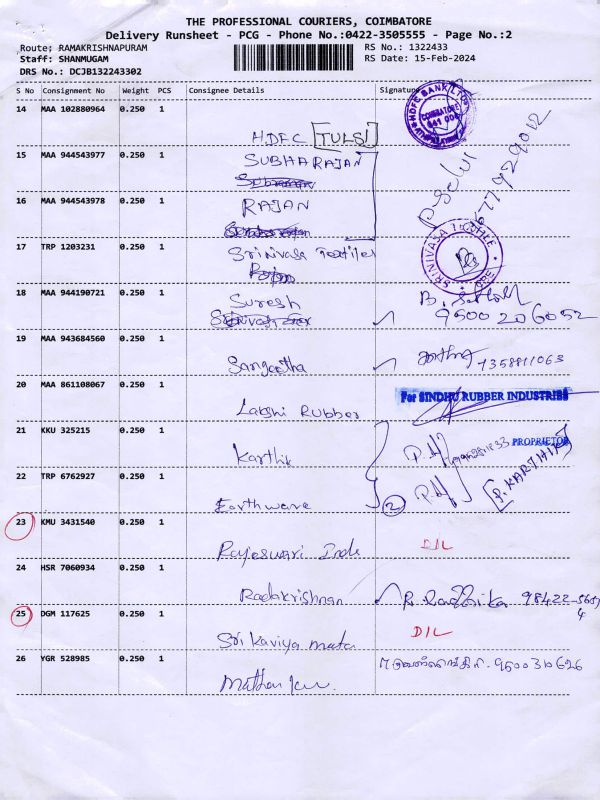 THE PROFESSIONAL COURIERS, COIMBATORE
Delivery Runsheet - PCG - Phone No.:0422-3505555 - Page No.:2
Route: RAMAKRISHNAPURAM RS No.: 1322433
Staff: SHANMUGAM RS Date: 15-Feb-2024
DRS No.: DCJB132243302
S No Consignment No Weight PCS Consignee Details Signature
14 MAA 102880964 0.250 1
HDFC TULSI
HDFC BANK LTD COIMBATORE 641 004
15 MAA 944543977 0.250 1 SUBHA RAJAN
16 MAA 944543978 0.250 1 RAJAN
17 TRP 1203231 0.250 1 Srinivasa Textiles
SRINIVASA TEXTILE
18 MAA 944190721 0.250 1 Suresh
9500206052
19 MAA 943684560 0.250 1
Sangeetha
20 MAA 861108067 0.250 1 For SINDHU RUBBER INDUSTRIES
Lakshi Rubber
21 KKU 325215 0.250 1 PROPRIETOR
Karthik
P. KARTHIK
22 TRP 6762927 0.250 1
Earthwave 2
23 KMU 3431540 0.250 1
Rajeswari Inds DIL
24 HSR 7060934 0.250 1
Radakrishnan R. Radhika 98422
25 DGM 117625 0.250 1
Sri Kaviya mata DIL
26 YGR 528985 0.250 1 9500310626